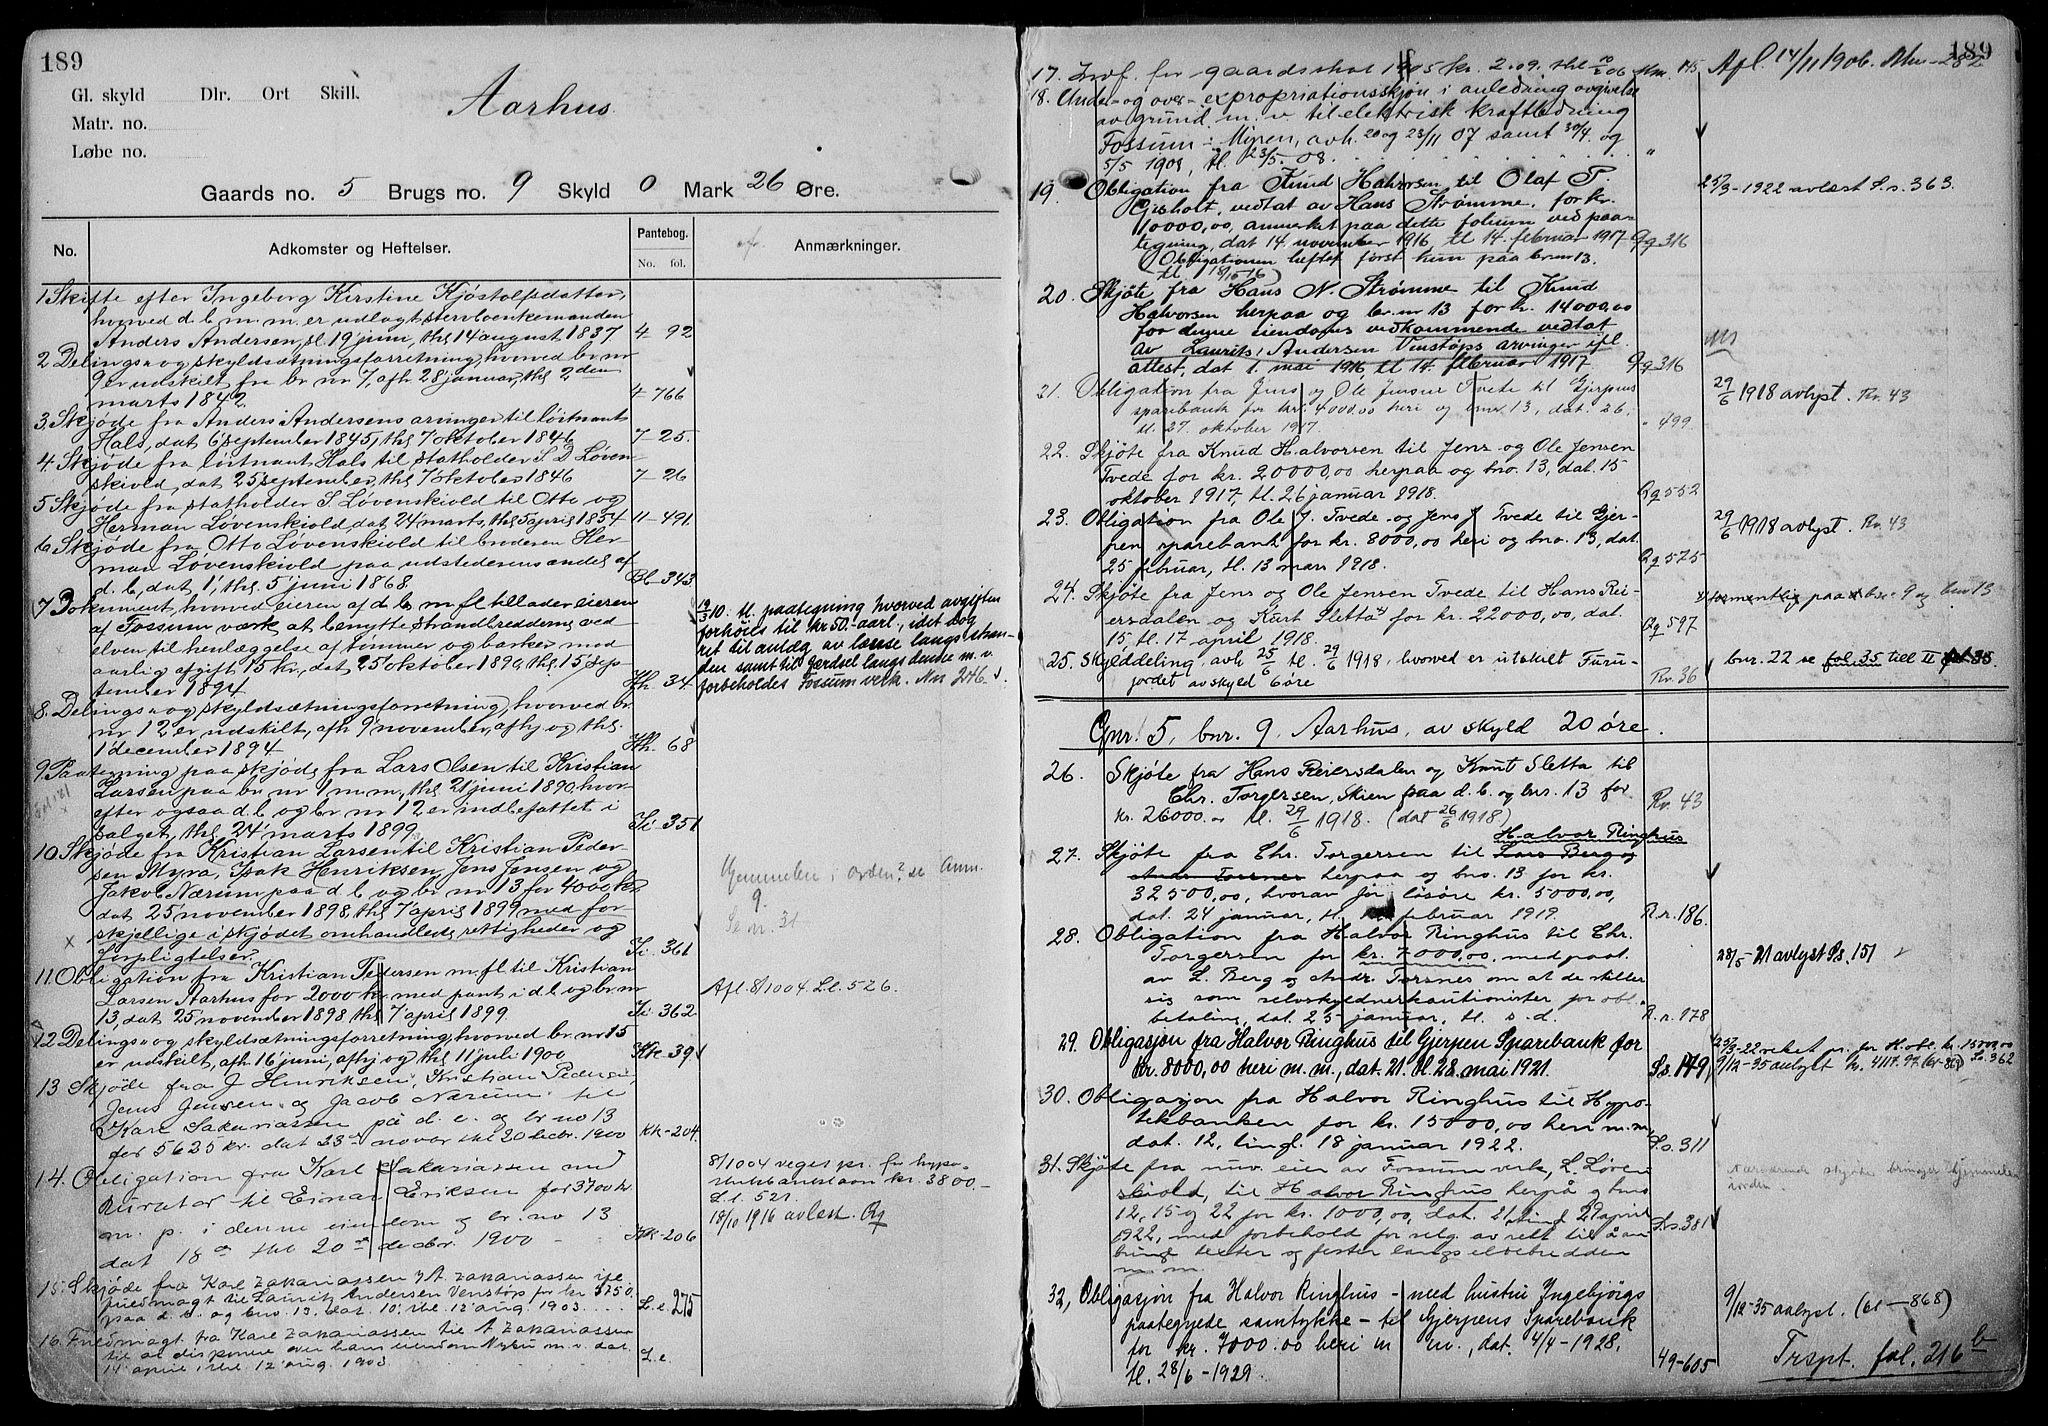 189
Gl. skyld Dlr. Ort Skill.
Matr. no.
Løbe no.
Aarhus.
Gaards no. 5 Brugs no. 9 Skyld 0 Mark 26 Øre.
No. Adkomster og Heftelser. Pantebog. No. fol. Anmærkninger.
1 Skifte efter Ingeborg Kirstine Kjøstolfsdatter,
hvorved d. b. m. m. er udlagt stervboenkemanden
Anders Andersen, sl. 19 juni, thl 14 august 1837 4-92
2 Delings- og skyldsætningsforretning, hvorved br. nr
9 er udskilt fra br nr 7, afh 28 januar, thl 2den
marts 1842. 4-766
3. Skjøde fra Anders Andersens arvinger til løitnant
Hals, dat 6 september 1845, thl 7 oktober 1846 7-25.
4 Skjøde fra løitnant Hals til statholder S D Løven-
skiold, dat 25 september, thl 7 oktober 1846 7-26
5 Skjøde fra statholder S. Løvenskiold til Otto og
Herman Løvenskiold, dat 24 marts, thl 5 april 1854 11-491.
6 Skjøde fra Otto Løvenskiold til broderen Her-
man Løvenskiold paa udstederens andel af
d. b, dat 1, thl 5 juni 1868. Bb-343
7 Dokument, hvorved eieren af d. b. m. fl tillader eieren
af Fossum værk at benytte strandbredderne ved
elven til henlæggelse af tømmer og barker mod
aarlig afgift 15 kr, dat 25 oktober 1890, thl 15 sep
tember 1894 Hh. 34
19/3 10. tl. paategning hvorved avgiften
forhöies til kr 50. aarl., idet dog
ret til anlæg av lænse langs stran-
den samt til gjerdsel langs denne m. v.
forbeholdes Fossum verk. Nn 246.
8. Delings- og skyldsætningsforretning, hvorved br.
nr 12 er udskilt, afh 9 november, afhj og thl.
1 december 1894 Hh. 68
9 Paategning paa skjøde fra Lars Olsen til Kristian
Larsen paa br nr 1 m. m, thl 21 juni 1890, hvor-
efter ogsaa d. b og br nr 12 er indbefattet i
salget, thl 24 marts 1899. Ii-351
10. Skjøde fra Kristian Larsen til Kristian Peder-
sen Myra, Isak Henriksen, Jens Jensen og
Jakob Nærum paa d. b og br nr 13 for 4000 kr,
dat 25 november 1898, thl 7 april 1899 med for-
skjellige i skjødet omhandlede rettigheder og
forpligtelser. Ii-361
Hjemmelen i orden? se Anm.
9.
Se nr. 31
11. Obligation fra Kristian Pedersen m. fl til Kristian
Larsen Aarhus for 2000 kr med pant i d. b og br. nr
13, dat 25 november 1898 thl 7 april 1899 Ii-362
Afl. 8/10 04 Ll. 526.
12 Delings- og skyldsætningsforretning, hvorved br. nr 15
er udskilt, afh 16 juni, afhj og thl 11 juli 1900 Kk-39
13 Skjøde fra J. Henriksen, Kristian Pedersen,
Jens Jensen og Jacob Nærum til
Karl Sakariassen på d. e. og br no 13
for 5625 kr. dat 23de novbr thl 20 decbr. 1900 KK-204.
14. Obligation fra Karl Sakariassen med
kurator til Einar Eriksen for 3700 kr.
m. p. i denne eiendom og br. no 13
dat 18de thl 20de decbr. 1900 Kk-206
8/10 04 veget pr. for hypo-
thekbanklaan kr. 3800.-
Ll. 521.
18/10 1916 avlæst. Qq
15. Skjøde fra Karl Zakariassen v/ A. Zakariassen ifl
fuldmagt til Laurits Andersen Venstøp for kr 5250.
paa d. b. og bno. 13. dat. 10. thl. 12 aug. 1903. Ll. 275
16. Fuldmagt fra Karl Zakariassen til A Zakariassen
til at disponere over hans eiendom Myra m. v. dat.
14 april, thl. 12 aug. 1903 Ll.
189
17. for gaardsskat 1905 kr. 2.09. thl 06 Mm. 145 Afl. 14/11 1906. Mm-282
18. Under- og over-expropriationsskjøn i anledning avgivelse
av grund m. v. til elektrisk kraftledning
Fossum - Myren, avh. 20 og 23/11 07 samt 30/4. og
5/5 1908, tl. 23/5. 08. "
19. Obligation fra Knud Halvorsen til Olaf P.
Gisholt, vedtat av Hans Strømme, for kr.
10000,00, anmerket paa dette folium ved paa-
tegning, dat 14 november 1916, tl 14. februar 1917. Qq 316
(Obligationen heftet først kun paa brnr 13.
tl 18/10-16)
25/3-1922 avlæst S.s. 363.
20. Skjøte fra Hans N. Strømme til Knud
Halvorsen herpaa og br. nr 13 for kr. 14000,00
for denne eiendoms vedkommende vedtat
av Laurits Andersen Venstøps arvinger ifl.
attest, dat 1. mai 1916, tl 14. februar 1917. Qq 316
21. Obligation fra Jens og Ole Jensen Tvede til Gjerpens
sparebank for kr. 4000,00 heri og bnr. 13, dat. 26.
tl. 27. oktober 1917. " 499.
29/6 1918 avlyst. Rr. 43
22. Skjøte fra Knud Halvorsen til Jens og Ole Jensen
Tvede for kr. 20000,00 herpaa og bno. 13, dat. 15
oktober 1917, tl. 26 januar 1918. Qq 552
23. Obligation fra Ole J. Tvede og Jens J. Tvede til Gjer-
pen sparebank for kr. 8000,00 heri og bno. 13, dat.
25 februar, tl. 13 mars 1918. Qq 575
29/6 1918 avlyst. Rr. 43
24. Skjøte fra Jens og Ole Jensen Tvede til Hans Rei-
ersdalen og Knut Sletta for kr. 22000,00, dat.
15. tl. 17 april 1918. Qq 597
25. Skylddeling, avh. 25/6 tl. 29/6 1918, hvorved er utskilt Furu-
jordet av skyld 6 øre Rr. 36
bnr. 22 se fol. 35 till II
Gnr. 5, bnr. 9. Aarhus, av skyld 20 øre.
26. Skjøte fra Hans Reiersdalen og Knut Sletta til
Chr. Torgersen, Skien paa d. b. og bnr. 13 for
kr. 26000.00 tl. 29/6 1918. (dat 26/6 1918) Rr. 43
Halvor Ringhus
27. Skjøte fra Chr. Torgersen til Lars Berg og
Andr. Torsnes herpaa og bno. 13 for kr.
32500,00, hvorav for løsøre kr. 5000,00,
dat. 24 januar, tl. februar 1919. R.r. 186.
28. Obligation fra Halvor Ringhus til Chr.
Torgersen for kr. 7000,00, med paat.
av L. Berg og Andr. Torsnes om at de stiller
sig som selvskyldnerkautionister for obl.
betaling, dat. 25 januar, tl. s. d. R.r. 178
28/5-21 avlyst Ss. 151
29. Obligasjon fra Halvor Ringhus til Gjerpen Sparebank for
kr. 8000,00 heri m. m., dat. 21. tl. 28. mai 1921. Ss. 149,
25/3-22 veket pr. for H. obl. kr. 15000,00 Ss. 362
9/12-35 avlyst
30. Obligasjon fra Halvor Ringhus til Hypo-
tekbanken for kr. 15000,00 heri m. m.
dat. 12, tingl. 18 januar 1922. S.s. 311
31. Skjøte fra nuv. eier av Fossum verk, L. Løven
skiold, til Halvor Ringhus herpå og bno
12, 15 og 22 for kr. 1000,00, dat. 21 tingl 29 april
1922, med forbehold for selg. av rett til å an
bringe og fester langs elvebredden
m. m. S.s. 381
Nærværende skjøte bringer hjemmelen
iorden.
32, Obligasjon fra Halvor Ringhus - med hustru Ingebjørgs
paategnede samtykke - til Gjerpens Sparebank
for kr. 7000.00 heri m. m., dat. 4/4-1928.
tl. 28/6-1929. 49-605
9/12-35 avlyst. (61-868)
Trspt. fol. 216 b